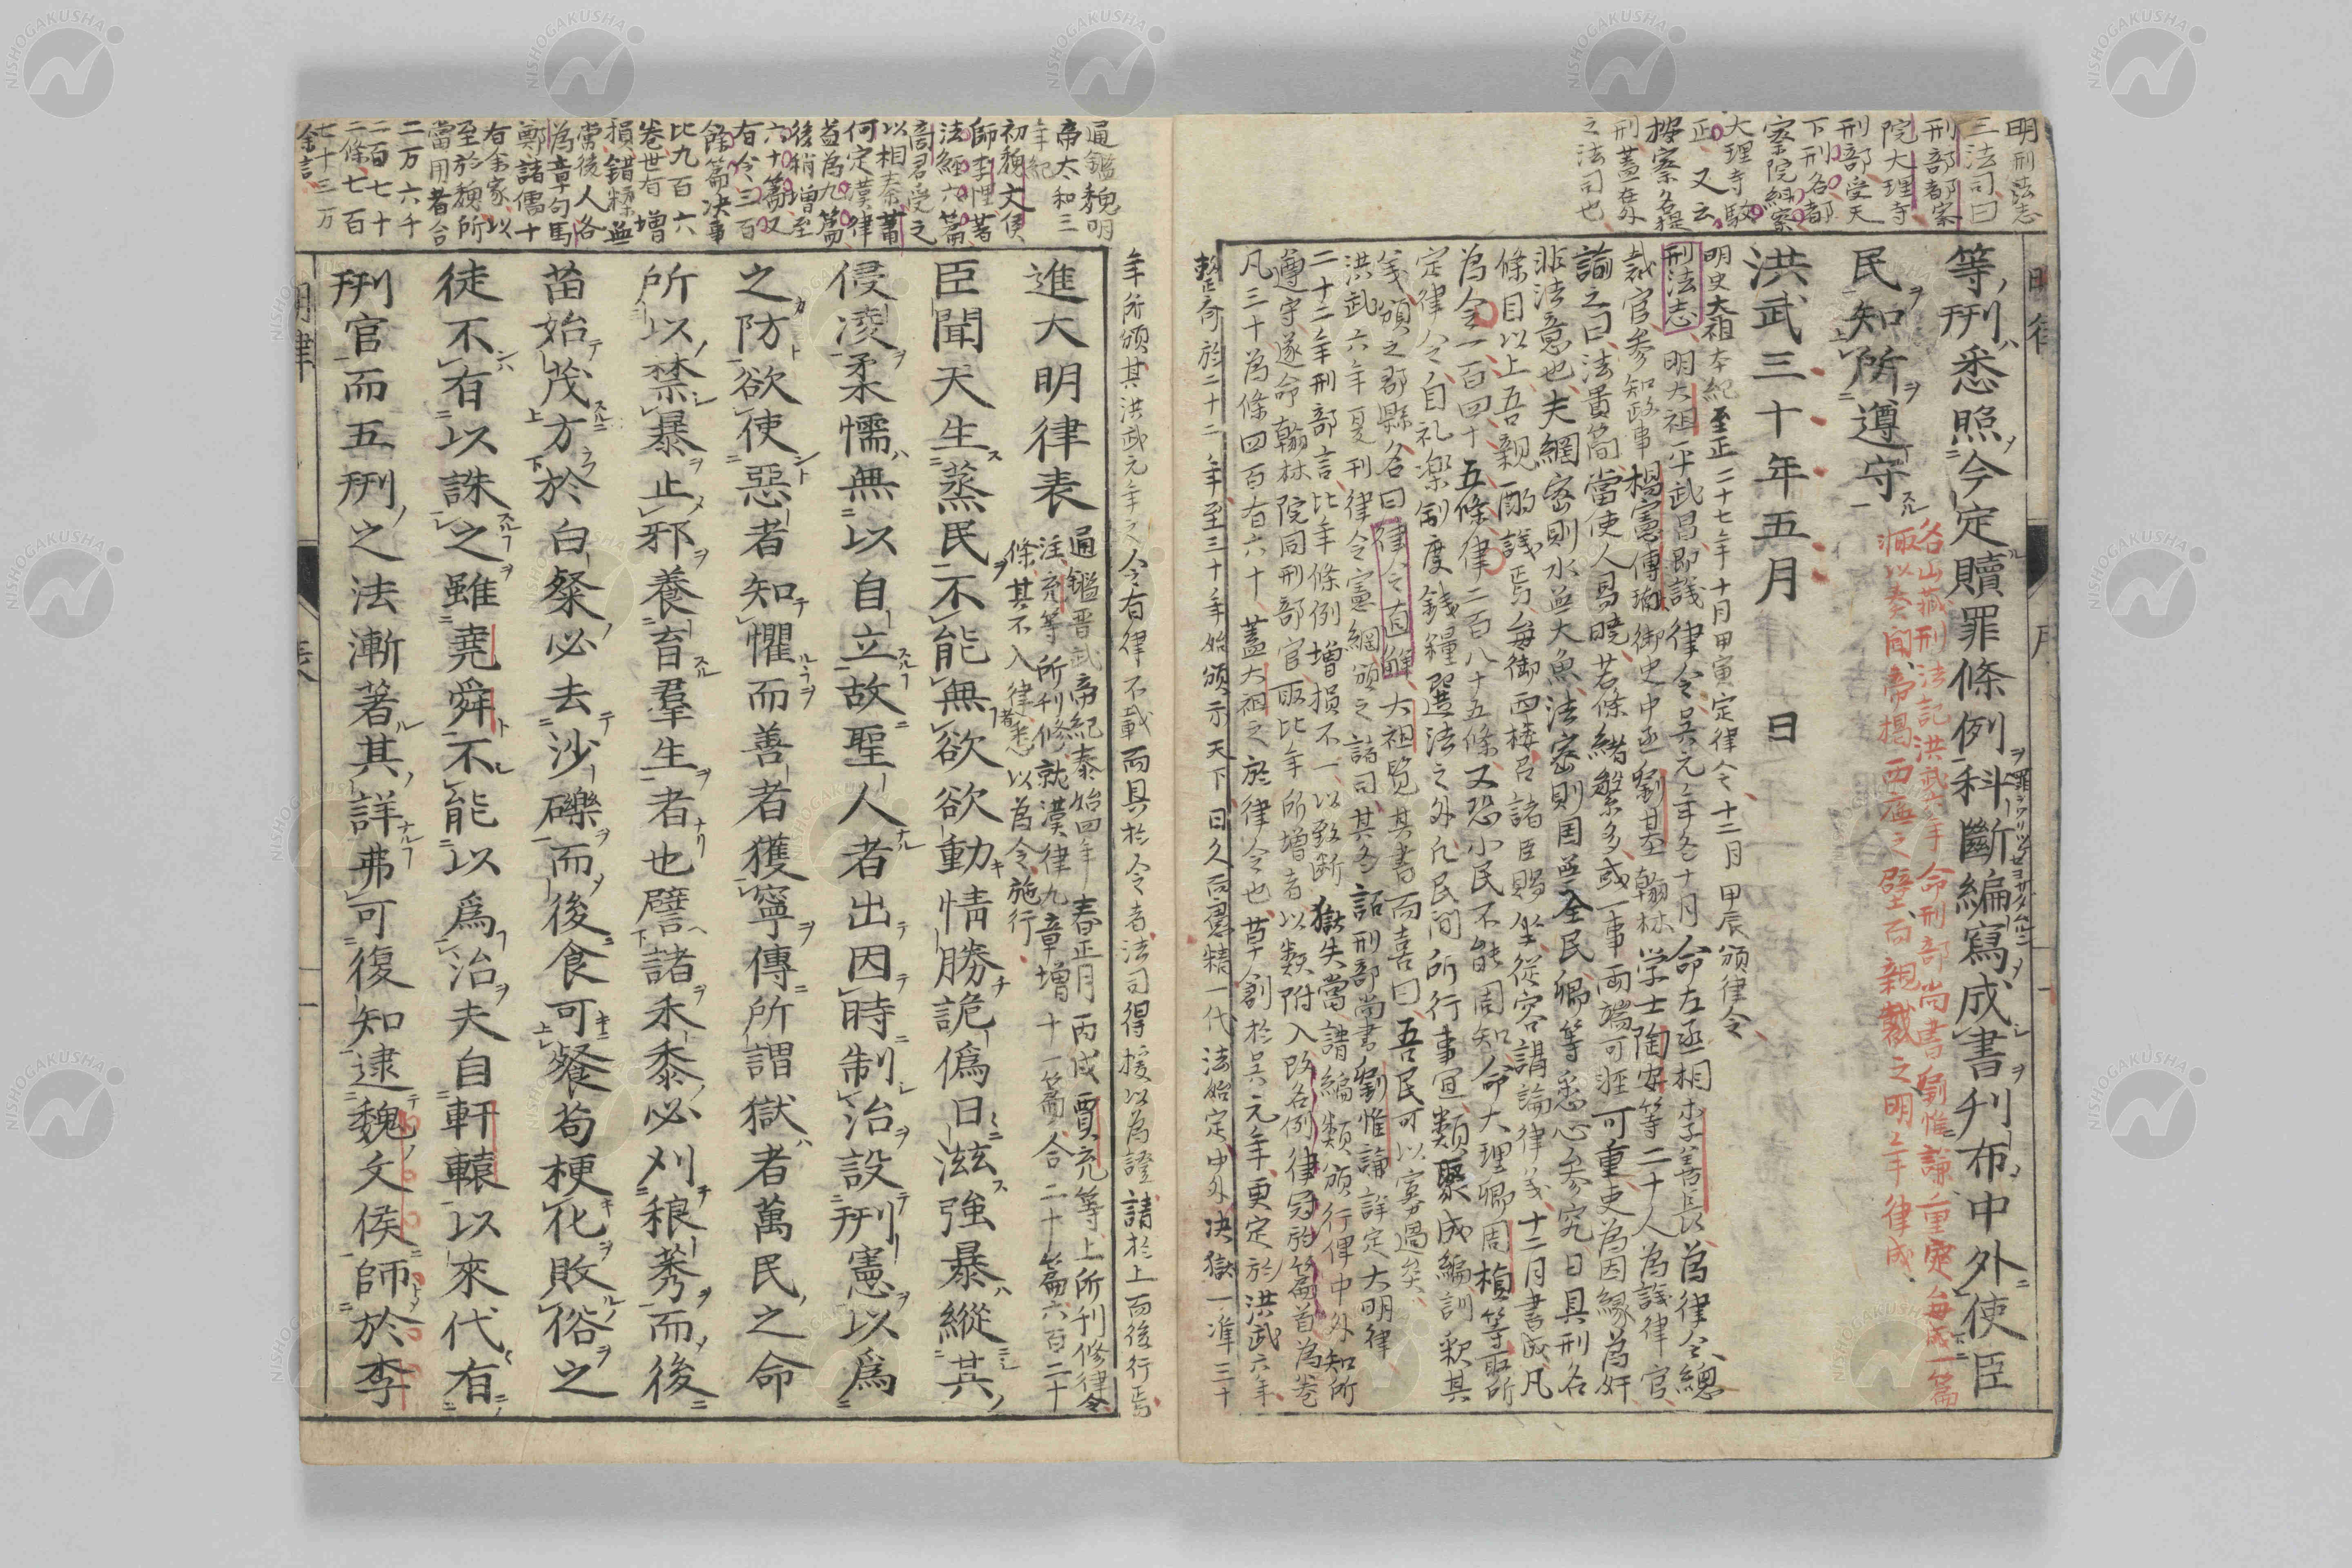 明刑法志
三法司曰
刑部都察
院大理寺
刑部受天
下刑名都
察院糾察
大理寺駁
正又云
按察名提
刑蓋在外
之法司也
等刑悉照今定贖罪條例科斷編寫成書刊布中外使臣
民知所遵守
各山藏刑法記洪武六年命刑部尚書劉惟謙重定每成一篇
輒以奏聞帝揭西廡之壁面親裁之明年律成
洪武三十年五月 日
明史大祖本紀至正二十七年十月甲寅定律令十二月甲辰頒律令
刑法志明大祖平武昌即議律令吳元年冬十月命左丞相李善長為律令總
裁官參知政事楊憲傅瓛御史中丞劉基翰林学士陶安等二十人為議律官
諭之曰法貴簡當使人易曉若條緒繁多或一事兩端可輕可重吏為因緣為奸
非法意也夫網密則水無大魚法密則国無全民卿等悉心参究日具刑名
條目以上吾親酌議焉每御西楼召諸臣賜坐從容講論律義十二月書成凡
為令一百四十五條律二百八十五條又恐小民不能周知命大理卿周楨等取所
定律令自礼楽制度錢糧選法之外凡民間所行事宜類聚成編訓釈其
義頒之郡縣名曰律令直解大祖覧其書而喜曰吾民可以寡過矣
洪武六年夏刊律令憲綱頒之諸司其冬詔刑部尚書劉惟謙詳定大明律
二十二年刑部言比年條例增損不一以致断獄失當請編類頒行俾中外知所
遵守遂命翰林院同刑部官取比年所增者以類附入改名例律冠於篇首為卷
凡三十為條四百有六十蓋大祖之於律令也草創於吳元年更定於洪武六年
整齊於二十二年至三十年始頒示天下日久而慮精一代法始定中外决獄一準三十
年所頒其洪武元年之令有律不載而具於令者法司得援以為證請於上而後行焉
通鑑魏明
帝太和三
年紀
初魏文侯
師李悝著
法經六篇
商君受之
以相秦蕭
何定漢律
益為九篇
後稍增至
六十篇又
有令三百
餘篇决事
比九百六
卷世有增
損錯糅無
常後人各
為章句馬
鄭諸儒十
有余家以
至於魏所
當用者合
二万六千
二百七十
二條七百
七十三万
余言
進大明律表
通鑑晋武帝紀泰始四年春正月丙戌賈充等上所刊修律令
注充等所刊修就漢律九章增十一篇合二十篇六百二十
條其不入律者悉以為令施行
臣聞天生蒸民不能無欲欲動情勝詭偽日滋強暴縱其
侵凌柔懦無以自立故聖人者出因時制治設刑憲以爲
之防欲使惡者知懼而善者獲寧傳所謂獄者萬民之命
所以禁暴止邪養育羣生者也譬諸禾黍必刈稂莠而後
苗始茂方於白粲必去沙礫而後食可餐苟梗化敗俗之
徒不有以誅之雖堯舜不能以爲治夫自軒轅以來代有
刑官而五刑之法漸著其詳弗可復知逮魏文侯師於李
明律
表
一